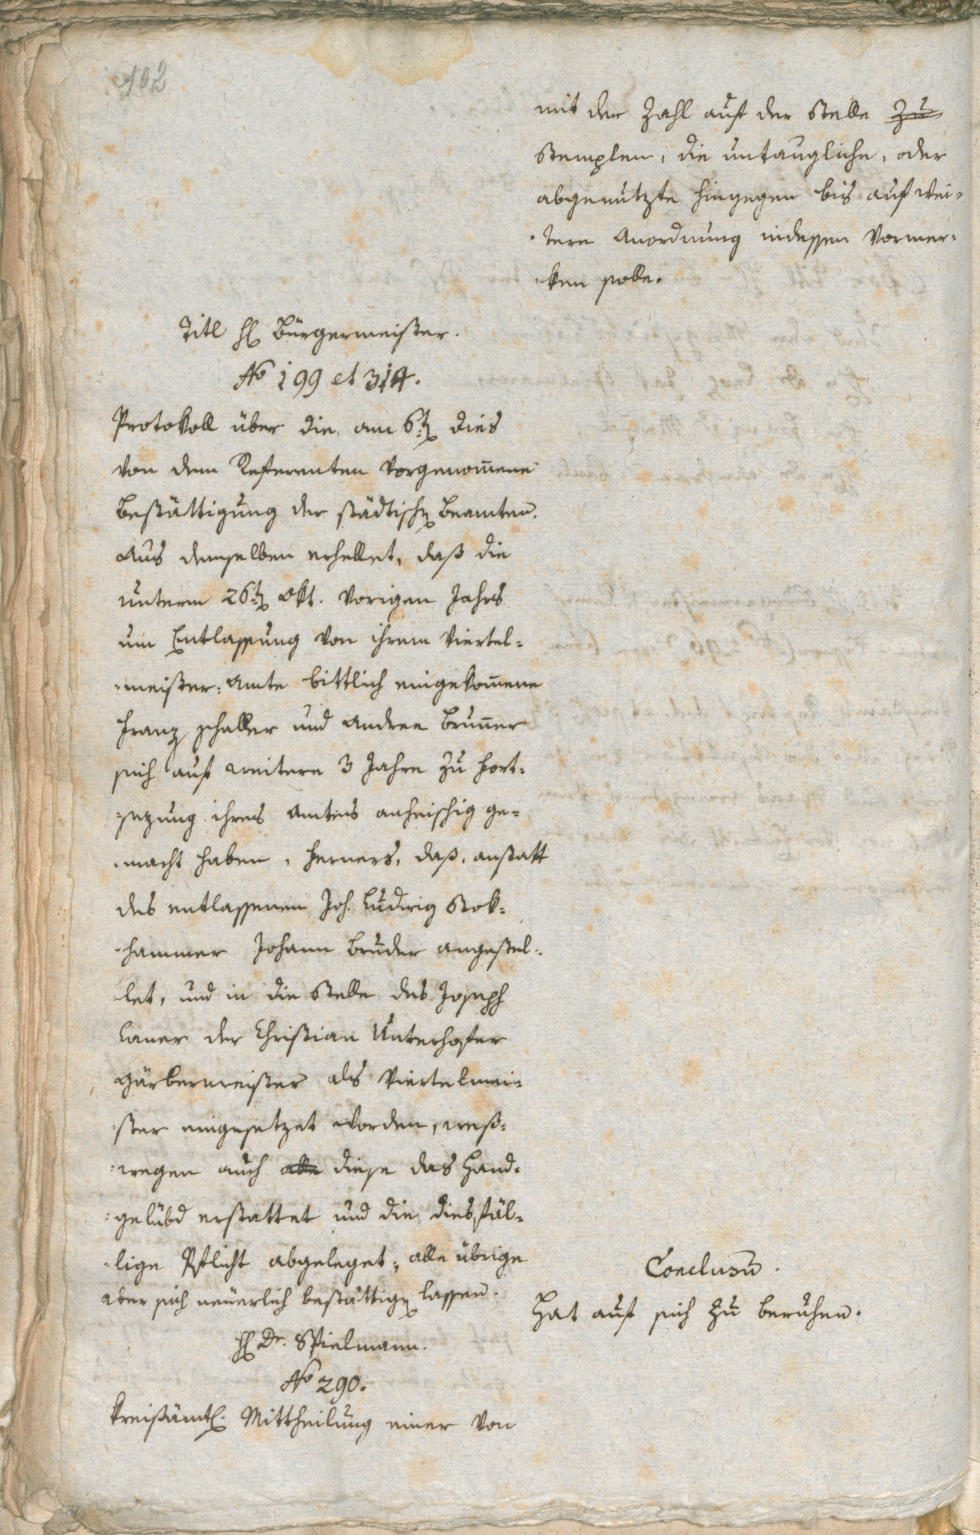 102
mit der Zahl auf der Stelle zu
Stemplen, die untaugliche, oder
abgenutzte hingegen bis auf wei-
tere Anordnung indessen Vormer-
ken solle.
Titl H Bürgermeister.
No 199 et 314.
Protokoll über die am 6t dies
von dem Referenten vorgenom̅ene
Bestättigung der städtisch Beamten.
Aus demselben erhellet, daß die
unterm 26t Okt. vorigen Jahrs
um Entlassung von ihrem Viertel-
meister-Amte bittlich eingekom̅ene
Franz Schaller und Andree Brun̅er
sich auf weitere 3 Jahre zu Fort-
sezung ihres Amtes anheischig ge-
macht haben, Ferners, daß, anstatt
des entlassenen Joh. Ludwig Stok-
hammer Johann Bruder angestel-
let, und in die Stelle des Joseph
Laner der Christian Unterhofer
Gärbermeister als Viertelmei-
ster eingesetzet worden, weß-
wegen auch alle diese das Hand-
gelübd erstattet und die diesfäl-
lige Pflicht abgeleget, alle übrige
aber sich neuerlich bestättig lassen.
H Dr. Spielmann.
No 290.
Kreisämtl. Mittheilung einer von
Conclusu̅.
Hat auf sich zu beruhen.